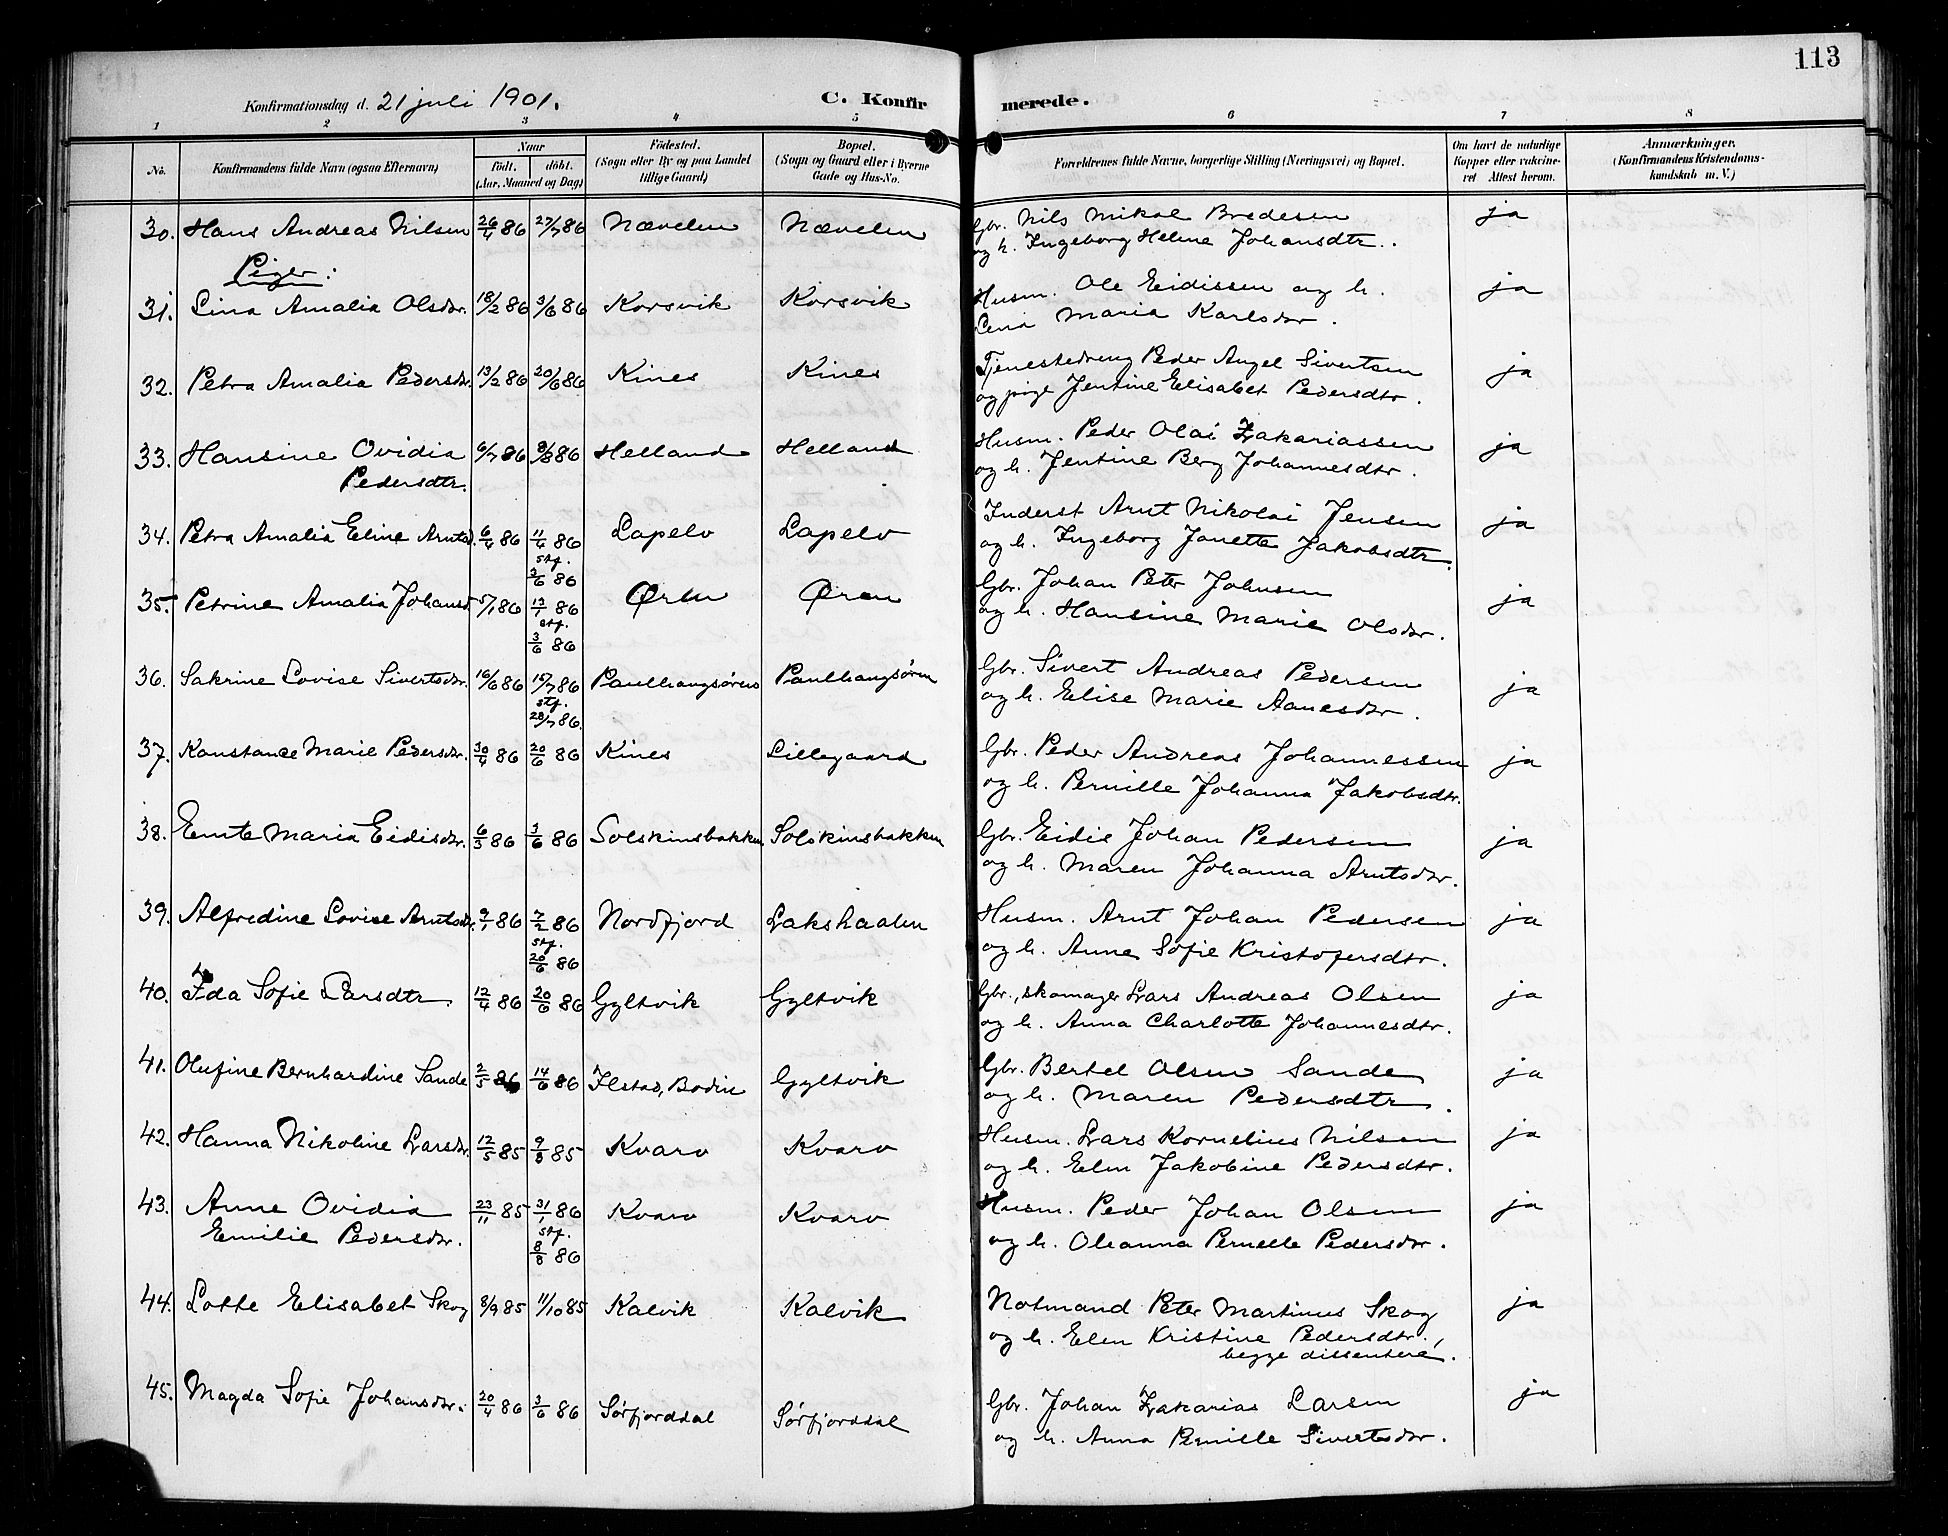 113
Konfirmationsdag d. 21 juli 1901.
C. Konfirmerede.
1 2 3 4 5 6 7 8
No.
Konfirmandens fulde Navn (ogsaa Efternavn)
Naar
født. døbt.
(Aar, Maaned og Dag)
Fødested.
(Sogn eller By og paa Landet
tillige Gaard)
Bopæl.
(Sogn og Gaard eller i Byerne
Gade og Hus-No.
Forældrenes fulde Navne, borgerlige Stilling (Næringsvei) og Bopæl.
Om havt de naturlige
Kopper eller vakcine-
ret Attest herom.
Anmærkninger.
(Konfirmandens Kristendoms-
kundskab m. V.)
30. Hans Andreas Nilsen 26/4 86 27/7 86 Nævelen Nævelen Gbr. Nils Mikal Bredesen ja
og h. Ingeborg Heline Johansdtr.
Piger:
31. Lina Amalia Olsdtr. 18/2 86 3/6 86 Korsvik Korsvik Husm. Ole Eidissen og h. ja
Lena Maria Karlsdtr.
32. Petra Amalia Pedersdtr. 13/2 86 20/6 86 Kines Kines Tjenestedreng Peder Angel Sivertsen ja
og pige Jentine Elisabet Pedersdtr.
33. Hansine Ovidia 6/7 86 8/8 86 Helland Helland Husm. Peder Olai Zakariassen ja
Pedersdtr. og h. Jentine Berg Johannesdtr.
34. Petra Amalia Eline Arntsd. 6/4 86 11/4 86 Lapelv Lapelv Inderst Arnt Nikolai Jensen ja
stf. og h. Ingeborg Janette Jakobsdtr.
3/6 86
35. Petrine Amalia Johansd. 5/1 86 17/1 86 Øren Øren Gbr. Johan Peter Johnsen ja
stf. og h. Hansine Marie Olsdtr.
3/6 86
36. Sakrine Lovise Sivertsdtr. 16/6 86 15/7 86 Paulhaugsøren Paulhaugsøren Gbr. Sivert Andreas Pedersen ja
stf. og h. Elise Marie Aanesdtr.
28/7 86.
37. Konstance Marie Pedersdtr. 30/4 86 20/6 86 Kines Lillegaard Gbr. Peder Andreas Johannessen ja
og h. Pernille Johanna Jakobsdtr.
38. Emte Maria Eidisdtr. 6/3 86 3/6 86 Solskinsbakken Solskinsbakken Gbr. Eidis Johan Pedersen ja
og h. Maren Johanna Arntsdtr.
39. Alfredine Lovise Arntsdtr. 9/1 86 7/2 86 Nordfjord Lakshaalen Husm. Arnt Johan Pedersen ja
stf. og h. Anne Sofie Kristofersdtr.
20/6 86
40. Ida Sofie Larsdtr. 12/4 86 20/6 86 Gyltvik Gyltvik Gbr., skomager Lars Andreas Olsen ja
og h. Anna Charlotte Johannesdtr.
41. Olufine Bernhardine Sande 2/5 86 14/6 86 Ilstad, Bodin Gyltvik Gbr. Bertel Olsen Sande ja
og h. Maren Pedersdtr.
42. Hanna Nikoline Larsdtr. 12/5 85 9/8 85 Kvarv Kvarv Husm. Lars Kornelius Nilsen ja
og h. Elen Jakobine Pedersdtr.
43. Anne Ovidia 23/11 85 31/1 86 Kvarv Kvarv Husm. Peder Johan Olsen ja
Emilie Pedersdtr. stf. og h. Oleanna Pernelle Pedersdtr.
8/8 86
44. Lotte Elisabet Skog 8/9 85 11/10 85 Kalvik Kalvik Notmand Peter Martinus Skog ja
og h. Elen Kristine Pedersdtr.,
begge dissentere.
45. Magda Sofie Johansdtr. 20/4 86 3/6 86 Sørfjorddal Sørfjorddal Gbr. Johan Zakarias Larsen ja
og h. Anna Pernille Sivertsdtr.